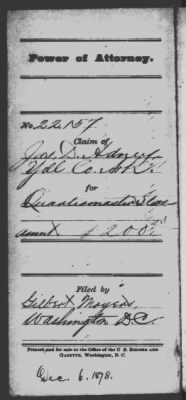 Power of Attorney.
No. 22157
Claim of
Jas. D. Adney
Co.
for
Quartermaster Stores
amount $200.75
Filed by
Gilbert Moyers,
Washington D.C.
Printed and for sale at the Office of the U. S. RECORD AND
GAZETTE, Washington, D. C.
Dec. 6. 1878.